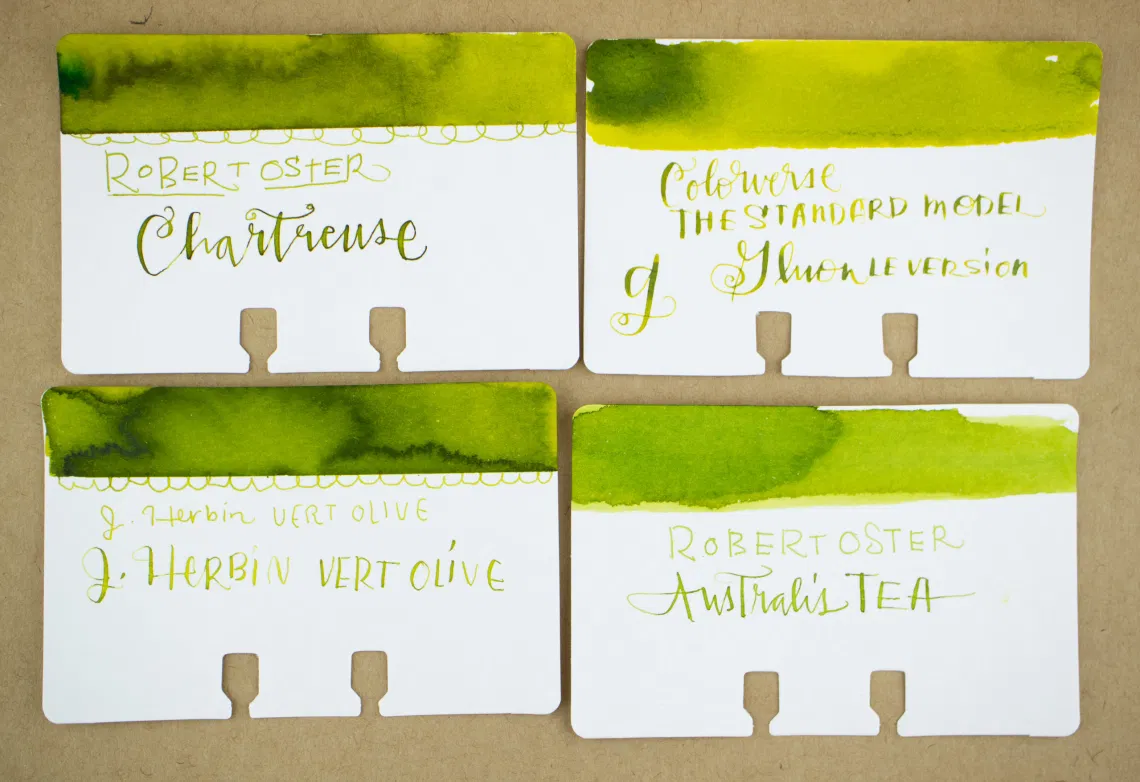 ROBERT OSTER
Chartreuse
Colorverse
THE STANDARD MODEL
g Gluon LE VERSION
J. Herbin VERT OLIVE
J. HERBIN VERT OLIVE
ROBERT OSTER
Australis TEA